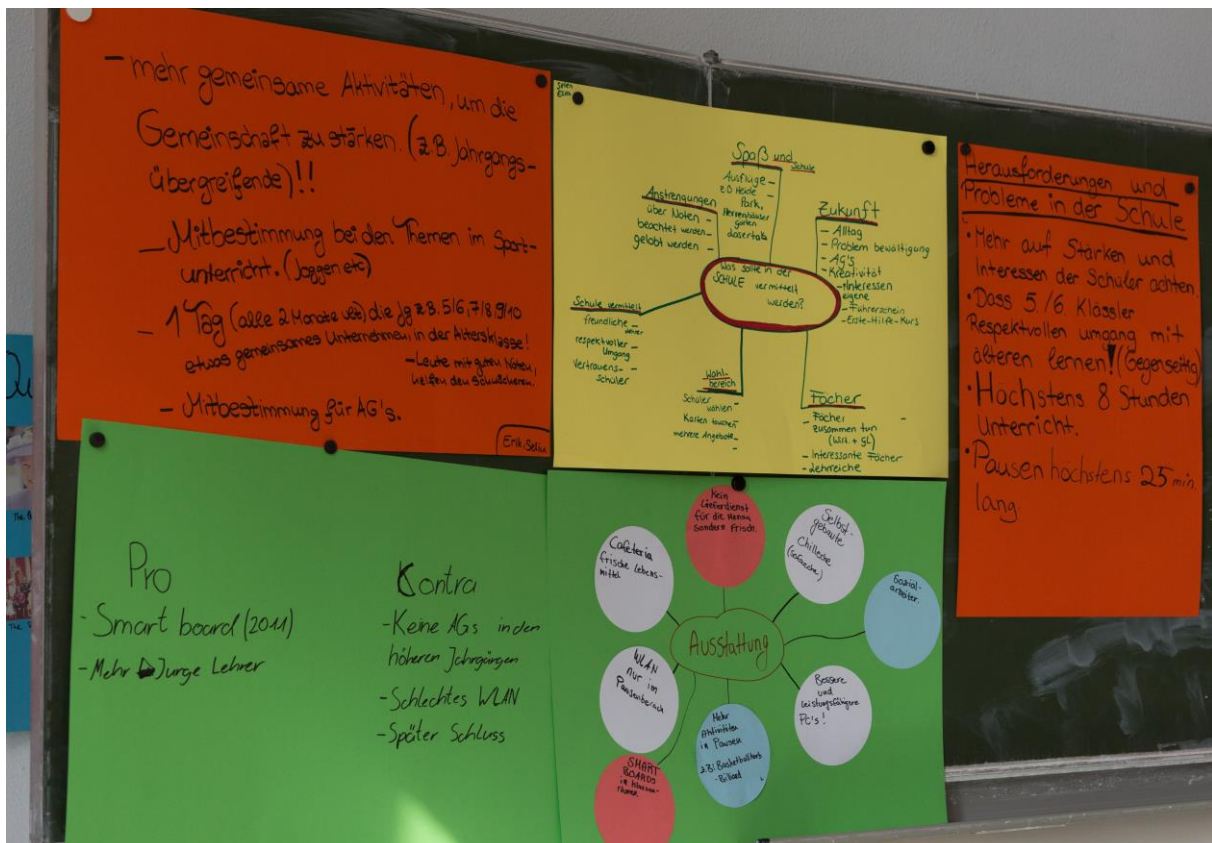 - mehr gemeinsame Aktivitäten, um die
Gemeinschaft zu stärken. (z.B. Jahrgangs-
übergreifende)!!
- Mitbestimmung bei den Themen im Sport-
unterricht. (Joggen etc)
- 1 Tag (alle 2 Monate) die Jg z.B. 5/6, 7/8, 9/10
etwas gemeinsames Unternehmen in der Altersklasse!
- Leute mit guten Noten,
helfen den Schwächeren.
- Mitbestimmung für AG's.
Erik, Selin
Spaß und Schule
Ausflüge -
Heide -
Park,
Herrenhäuser
Gärten
Anstrengungen
über Noten -
beachtet werden -
gelobt werden -
Zukunft
- Alltag
- Problem bewältigung
- AG's
- Kreativität
- Interessen
eigene
- Führerschein
- Erste-Hilfe-Kurs
Was sollte in der
SCHULE vermittelt
werden?
Schule vermittelt
freundliche -
Lehrer
respektvoller -
Umgang
Vertrauens- -
Schüler
Wahl-
bereich
Schüler -
wählen
Karten tauschen -
mehrere Angebote -
-
Fächer
- Fächer -
zusammen tun
(Wirt. + GL) -
- Interessante Fächer
- Lehrreiche
Herausforderungen und
Probleme in der Schule
• Mehr auf Stärken und
Interessen der Schüler achten.
• Dass 5./6. Klässler
Respektvollen umgang mit
älteren lernen! (Gegenseitig)
• Höchstens 8 Stunden
Unterricht.
• Pausen höchstens 25 min
lang.
Pro
- Smart board (2011)
- Mehr Junge Lehrer
Kontra
- Keine AGs in den
höheren Jahrgängen
- Schlechtes WLAN
- Später Schluss
Kein
Lieferdienst
für die Mensa
Sondern Frisch.
Cafeteria
frische Lebens-
mittel
Selbst-
gebaute
Chillecke
Sozial-
arbeiter.
Ausstattung
WLAN
nur im
Pausenbereich
Bessere
und
leistungsfähigere
PC's!
Mehr
Aktivitäten
in Pausen
z.B: Basketballkorb
- Billard
SMART
BOARDS
in Klassen-
räumen